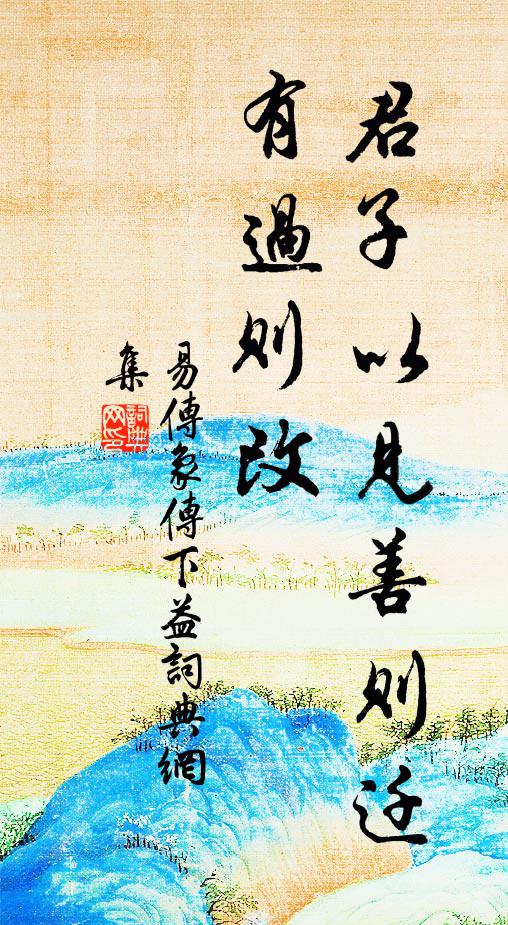 君子以見善則迁
有過則改
易傳象傳下益詞典網
集
詞典网印